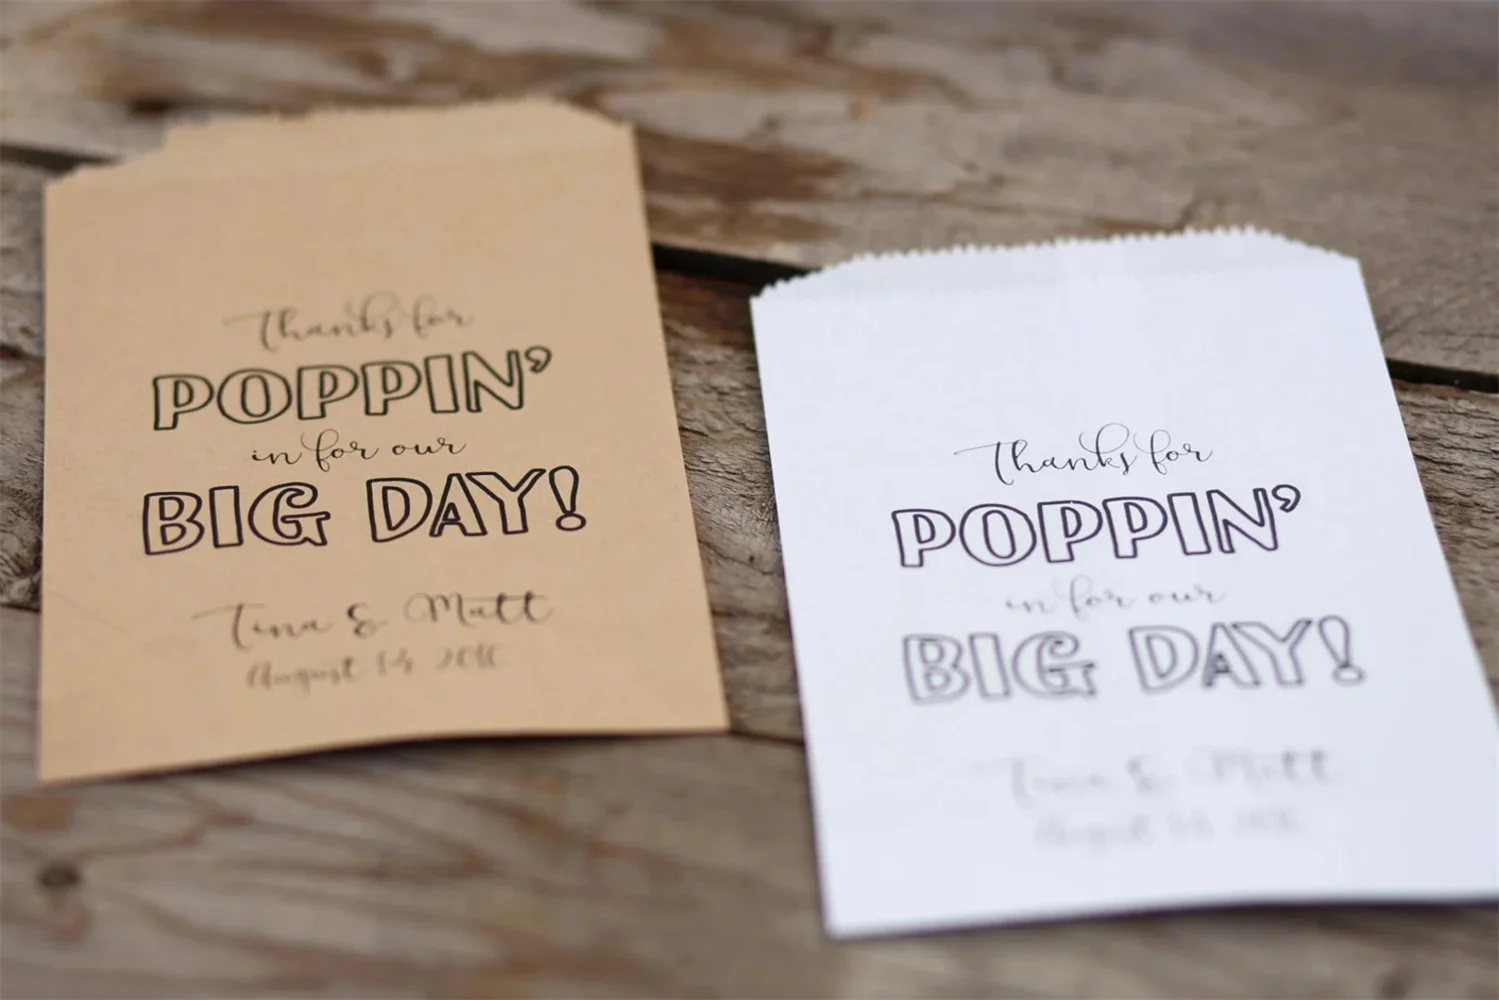 Thanks for
POPPIN'
in for our
BIG DAY!
Tina & Matt
August 14, 2016
Thanks for
POPPIN'
in for our
BIG DAY!
Tina & Matt
August